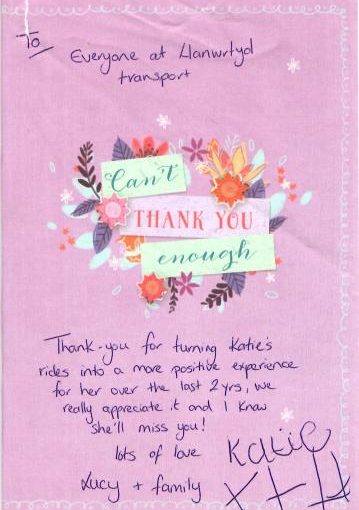 To
Everyone at Llanwrtyd
transport
Can't
THANK YOU
enough
Thank-you for turning Katie's
rides into a more positive experience
for her over the last 2 yrs, we
really appreciate it and I know
she'll miss you!
lots of love
Lucy + family
Katie